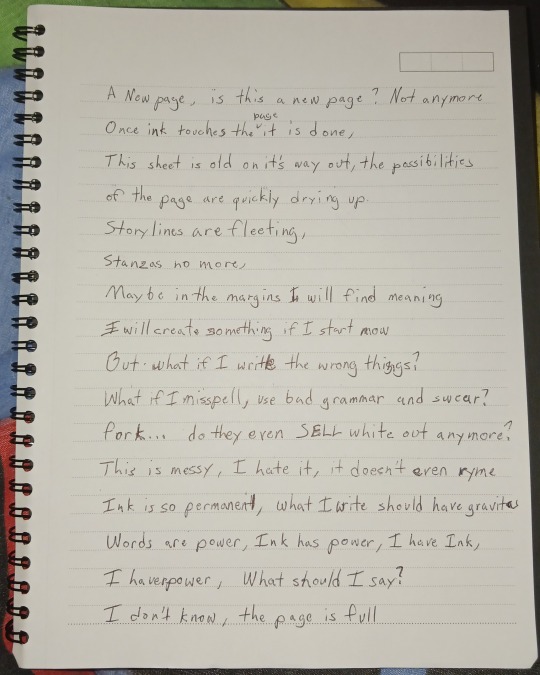 A New page, is this a new page? Not anymore
Once ink touches the page it is done,
This sheet is old on it's way out, the possibilities
of the page are quickly drying up.
Storylines are fleeting,
Stanzas no more,
Maybe in the margins I will find meaning
I will create something if I start now
But what if I write the wrong things?
What if I misspell, use bad grammar and swear?
Fork... do they even SELL white out anymore?
This is messy, I hate it, it doesn't even ryme
Ink is so permanent, what I write should have gravitas
Words are power, Ink has power, I have Ink,
I have power, What should I say?
I don't know, the page is full